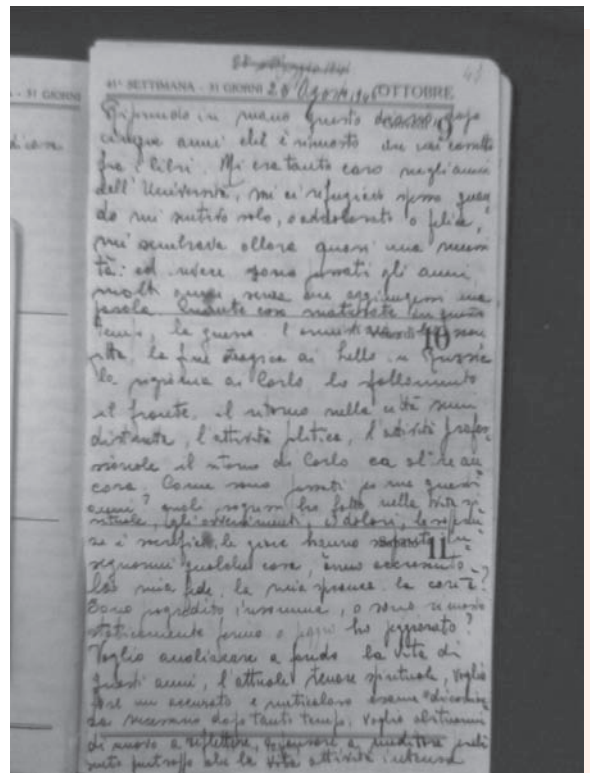 41ª SETTIMANA - 31 GIORNI 20 Agosto 1946 OTTOBRE
Riprendo in mano questo diario, dopo 9
cinque anni che è rimasto in un cassetto
fra i libri. Mi era tanto caro negli anni
dell'Università, mi ci rifugiavo spesso quan
do mi sentivo solo, o addolorato o felice,
mi sembrava allora quasi una necessi
tà: ed invece sono passati gli anni
molti anni senza che aggiungessi una
parola. Quante cose maturate in questo
tempo, la guerra l'armistizio 10
la fine tragica di Lello in Russia
la prigionia di Carlo, ho
il fronte, il ritorno nella città semi
distrutta, l'attività politica, l'attività profes
sionale il ritorno di Carlo
casa. Come sono passati per me questi
anni? quali progressi ho fatto nella vita spi
rituale, gli avvenimenti, i dolori, le
se i sacrifici, le gioie hanno 11
segnarmi qualche cosa, hanno accresciuto
la mia fede, la mia speranza, la carità?
Sono progredito insomma, o sono rimasto
staticamente fermo o peggio ho peggiorato?
Voglio analizzare a fondo la vita di
questi anni, l'attuale tenore spirituale, voglio
fare un accurato e meticoloso esame di coscien
za necessario dopo tanto tempo. Voglio abituarmi
di nuovo a riflettere, a pensare a meditare
purtroppo che la vita attività intensa
- 31 GIORNI